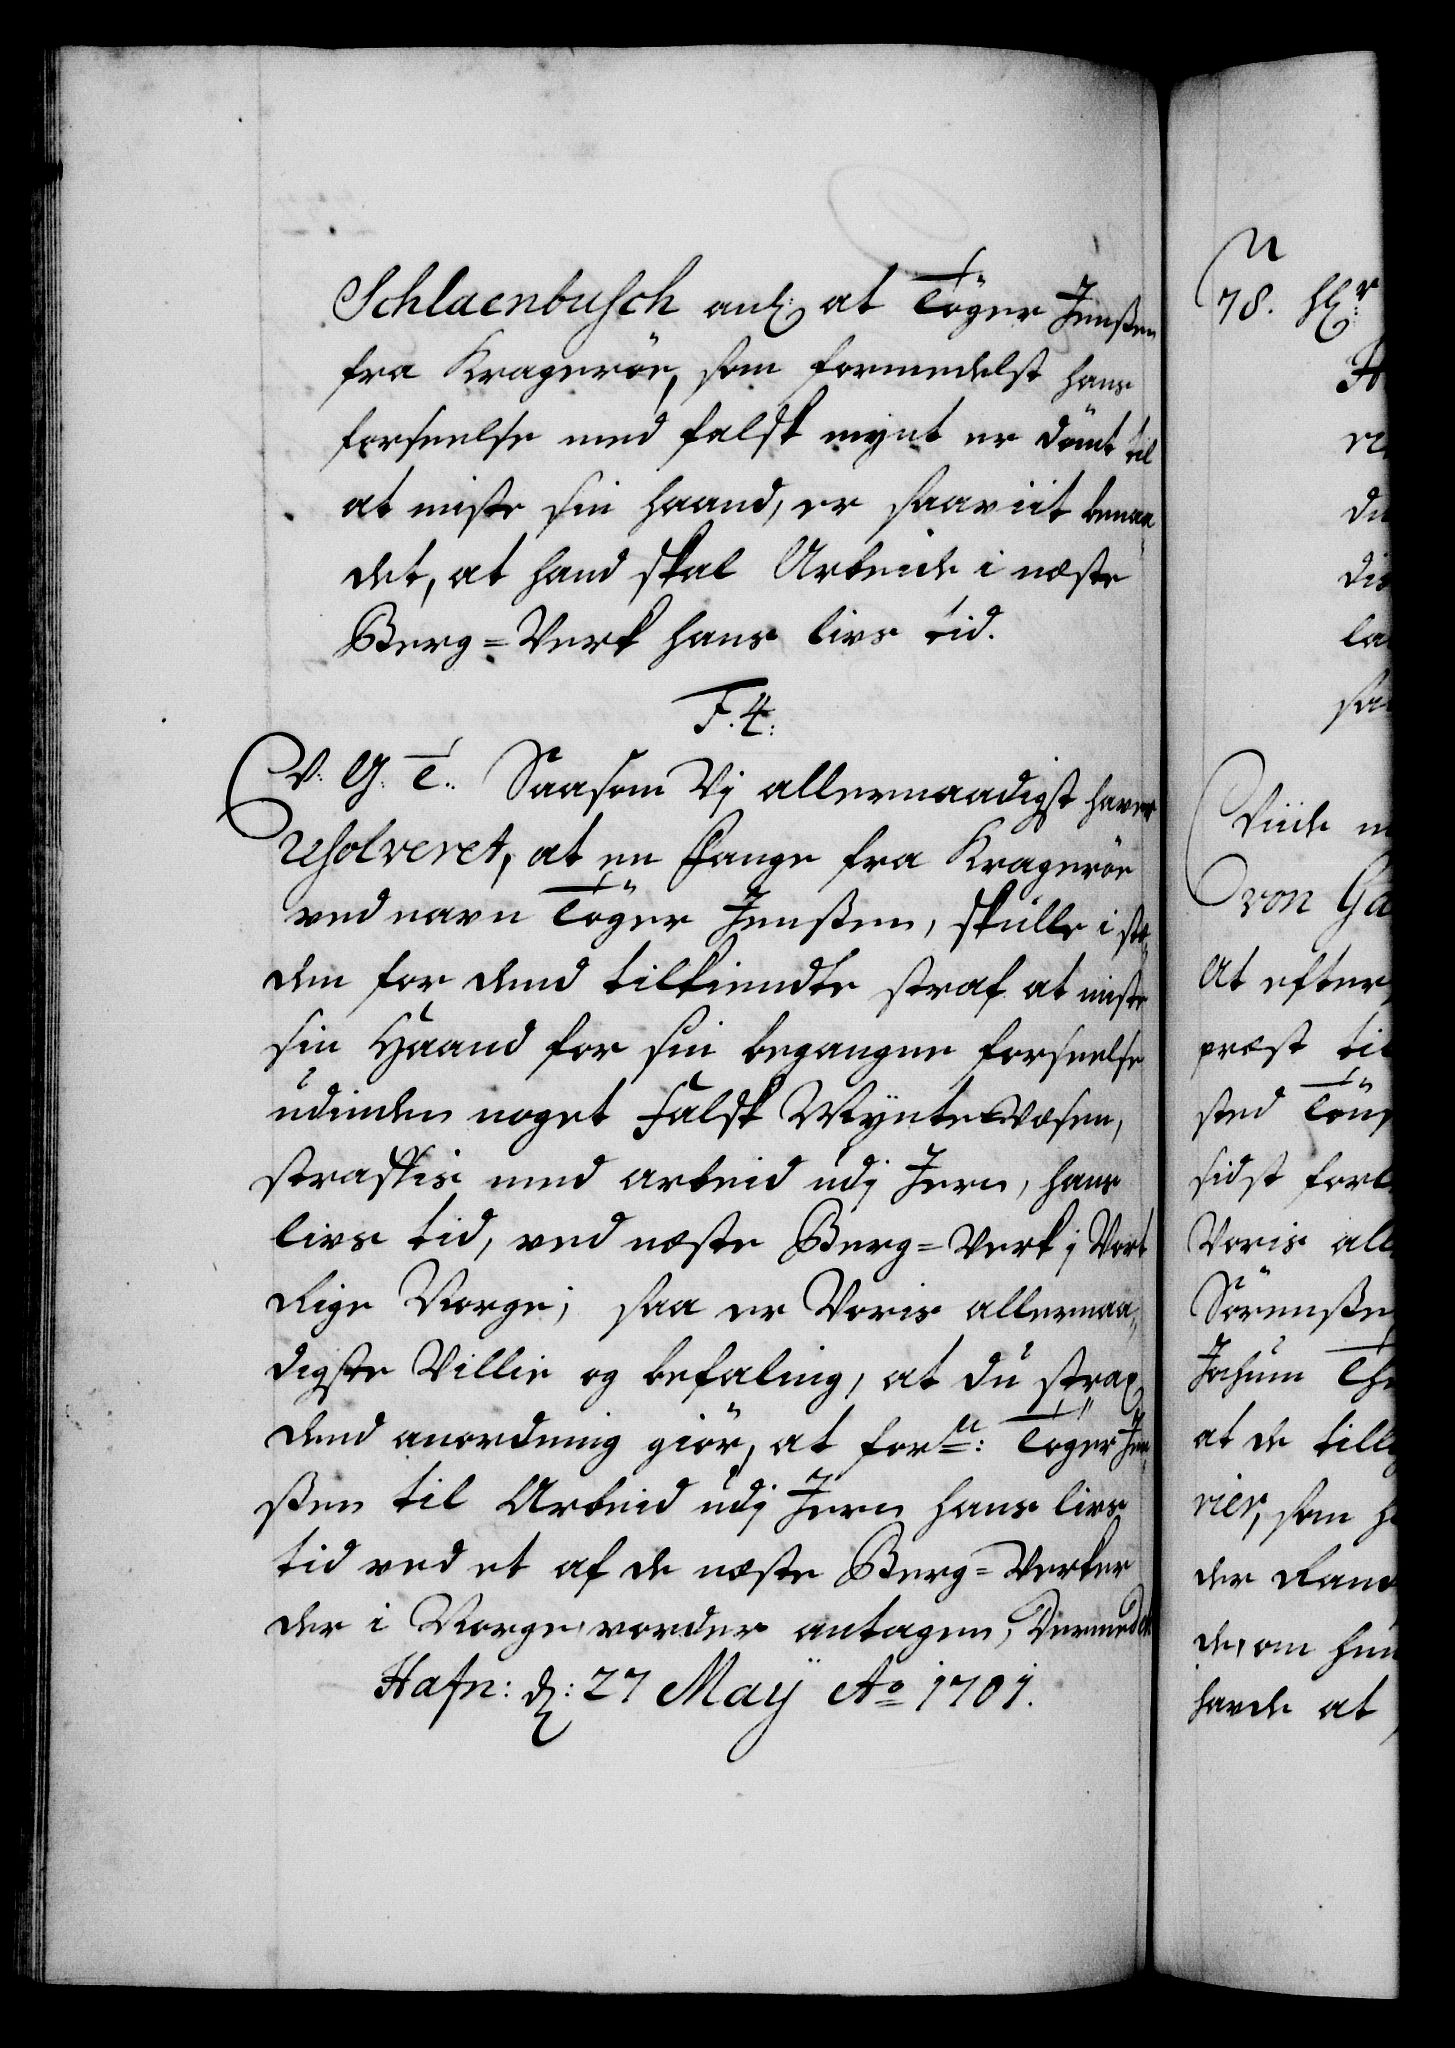 Schlaenbusch anl: at Töger Jenßen
fra Krageröe, som formedelst hans
forseelse med falsk mynt er dömt til
at miste sin haand, er saaviit benaa„
det, at hand skal Arbeide i næste
Berg=Verk hans livs tid.
F. 4.
V. G. T. Saasom Vj allernaadigst haver
resolveret, at en Fange fra Krageröe
ved navn Töger Jenßen, skulle i stæ„
den for dend tilkiendte straf at miste
sin Haand for sin begangne forseelse
udinden noget Falsk Mynte Væsen,
straffis med arbeid udj Jern, hans
livs tid, ved næste Berg=Verk j Vort
Rige Norge; saa er Voris allernaa„
digste Villie og befaling, at du strax
dend anordning giör, at forne: Töger Jen„
ßen til Arbeid udj Jern hans livs
tid ved et af de næste Berg=Verker
der i Norge vorder antagen, Dermed
Hafn: d: 27 Maÿ Ao 1701.
78. Hr:
Viide
von Ga
At efter
præst til
sted Töns
sidst forl
Voris all
Sörenße
Jochum The
at de till
rier, som h
der Rand
de, om hun
havde at